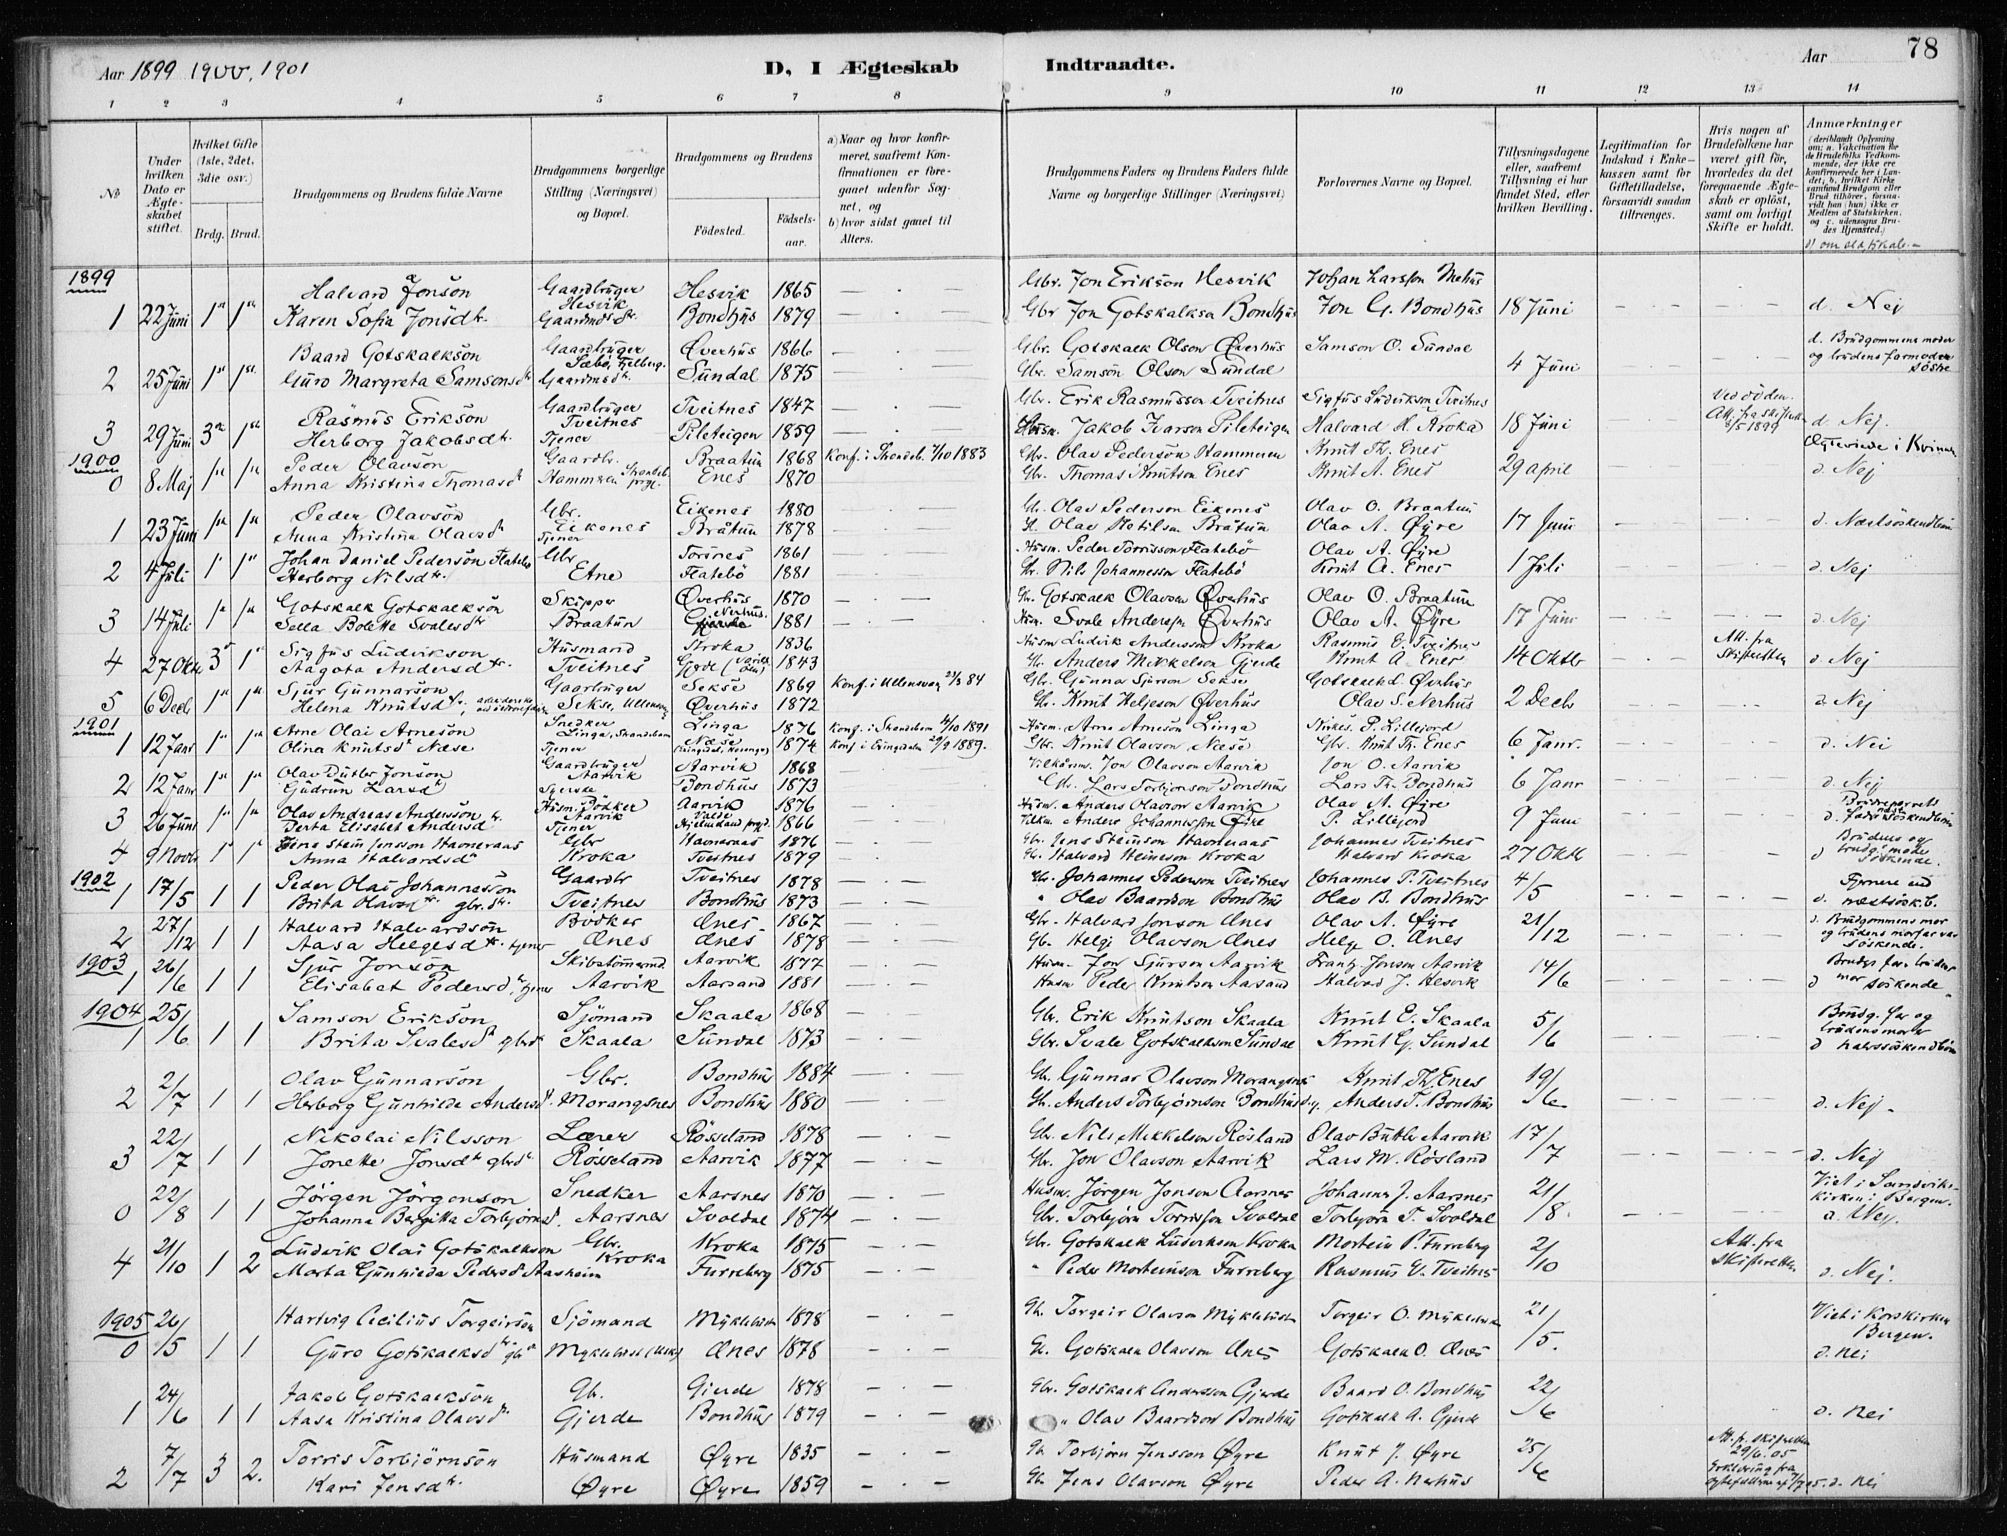 Aar 1899 1900, 1901
D, I Ægteskab Indtraadte.
Aar 78
1 2 3 4 5 6 7 8 9 10 11 12 13 14
№
Under hvilken Dato er Ægteskabet stiftet.
Hvilket Gifte (1ste, 2det, 3die osv.)
Brdg. Brud.
Brudgommens og Brudens fulde Navne
Brudgommens borgerlige Stilling (Næringsvei) og Bopæl.
Brudgommens og Brudens
Fødested. Fødselsaar.
a) Naar og hvor konfirmeret, saafremt Konfirmationen er foregaaet udenfor Sognet, og
b) hvor sidst gaaet til Alters.
Brudgommens Faders og Brudens Faders fulde Navne og borgerlige Stillinger (Næringsvei)
Forlovernes Navne og Bopæl.
Tillysningsdagene eller, saafremt Tillysning ei har fundet Sted, efter hvilken Bevilling.
Legitimation for Indskud i Enkekassen samt for Giftetilladelse, forsaavidt saadan tiltrænges.
Hvis nogen af Brudefolkene har været gift før, hvorledes da det foregaaende Ægteskab er opløst, samt om lovligt Skifte er holdt.
Anmærkninger (deriblandt Oplysning om: a. Vakcination for de Brudefolks Vedkommende, der ikke ere konfirmerede her i Landet; b. hvilket Kirkesamfund Brudgom eller Brud tilhører, forsaavidt han (hun) ikke er Medlem af Statskirken, og c. udensogns Brudes Hjemsted.)
1899
Halvard Jonson Gaardbruger Hesvik 1865 Gbr. Jon Erikson Hesvik Johan Larsson Mehus
1 22 Juni 1ste 1ste Karen Sofia Jonsdtr. Hesvik Gaardmdtr. Bondhus 1879 Gbr Jon Gotskalkson Bondhus Jon G. Bondhus 18 Juni d. Nej
Baard Gotskalkson Gaardbruger Øverhus 1866 Gbr. Gotskalk Olson Øverhus Samson O. Sundal d. Brudgommens moder og brudens farmoder søstre
2 25 Juni 1ste 1ste Guro Margreta Samsonsdtr Gaardmdtr. Sundal 1875 Gbr. Samson Olson Sundal 4 Juni
Rasmus Erikson Gaardbruger Tveitnes 1847 Gbr. Erik Rasmusson Tveitnes Sigfus Ludvikson Tveitnes Ved døden. Att. fra skifteretten 8/5 1899
3 29 Juni 3die 1ste Herborg Jakobsdtr. Tveitnes Tjener Pileteigen 1859 Husm. Jakob Ivarson Pileteigen Halvard H. Kroka 18 Juni d. Nej.
1900
Peder Olavson Gaardbr. Braatun 1868 Konf. i Strandeb. 7/10 1883 Gbr. Olav Pederson Hammeren Knut Th. Enes
0 8 Maj 1ste 1ste Anna Kristina Thomasdtr Hammeren Enes 1870 Gbr. Thomas Knutson Enes Knut A. Enes 29 april d. Nej
Peder Olavson Gbr. Eikenes 1880 Olav Pederson Eikenes Olav O. Braatun
1 23 Juni 1ste 1ste Anna Kristina Olavsdtr Eikenes Tjener Bråtun 1878 Olav Ketilson Bråtun Olav A. Øyre 17 Juni d. Næstsøskendbørn
Johan Daniel Pederson Flatebø Gbr Torsnes 1861 Husm. Peder Torrisson Flatebø Olav A. Øyre
2 4 Juli Herborg Nilsdtr. Etne Flatebø 1881 Gbr. Nils Johannesson Flatebø Knut A. Enes 1 Juli d. Nej
Gotskalk Gotskalkson Skipper Øverhus 1870 Gbr. Gotskalk Olavson Øverhus Olav O. Braatun
3 14 Juli Sella Bolette Svalesdtr Braatun Nerhus. 1881 Husm. Svale Anderson Øverhus Olav A. Øyre 17 Juni d. Nej
Sigfus Ludvikson Husmand Kroka 1836 Husm Ludvik Andersson Kroka Rasmus E. Tveitnes Att. fra Skifteretten
4 27 Oktr 3 1 Aagota Andersdtr. Tveitnes Gjerde 1843 Gbr. Anders Mikkelson Gjerde Knut A. Enes 14 Oktb d. Nej
Sjur Gunnarson Gaardbruger Sekse 1869 Konf. i Ullensvang 21/3 84 Gbr. Gunnar Sjurson Sekse Gotskalk L. Øverhus
5 6 Decb Helena Knutsdtr. Sekse, Ullensvang Øverhus 1872 Gbr. Knut Heljeson Øverhus Olav S. Nerhus 2 Decb d. Nej
1901
Arne Olai Arneson Snedker Linga 1876 Konf. i Strandebarm 4/10 1891 Husm. Arne Arneson Linga P. Lillejord
1 12 Janr Olina Knutsdtr Næse Linga, Strandebarm Tjener Næse 1874 Konf i Eringsdalen 29/9 1889. Gbr. Knut Olavson Næse Gbr. Knut Th. Enes 6 Janr. d. Nei
Olav Butler Jonson Gaardbruger Aarvik 1868 Jon Olavson Aarvik Jon O. Aarvik
2 12 Janr Gudrun Larsdtr Aarvik Bondhus 1873 Gbr. Lars Torbjørnson Bondhus Lars Th. Bondhus 6 Janr d. Nej
Olav Andreas Andersson Husm. Bødker Aarvik 1876 Husm. Anders Olavson Aarvik Olav A. Øyre
3 26 Juni Berta Elisabet Andersdtr. Aarvik Tjener 1866 Anders Johannesson Øvre P. Lillejord 9 Juni
Jens Stein Jensson Havneraas Gbr Havneraas 1876 Gbr. Jens Steinson Havneraas Johannes Tveitnes Brudens og brudg. mødre Søskende.
4 9 Novb Anna Halvardsdtr Kroka Tveitnes 1879 Gbr. Halvard Heineson Kroka Halvard Kroka 27 Oktb
1902
Peder Olai Johannesson Gaardbr Tveitnes 1878 Gbr. Johannes Pederson Tveitnes Johannes P. Tveitnes 4/5 Fjernere end næstsøsk.b.
1 17/5 1 1 Brita Olavsdtr. gbr.dtr. Tveitnes Bondhus 1873 " Olav Baardson Bondhus Olav B. Bondhus d.
Halvard Halvardson Bødker Ænes 1867 Gbr. Halvard Jonson Ænes Olav A. Øyre 21/12 d. Brudgommens mor og brudens morfar var søskende.
2 27/12 1 1 Aasa Helgesdtr. tjener Ænes Ænes 1878 Gb. Helge Olavson Ænes Helge O. Ænes
1903
Sjur Jonson Skibstømmermd. Aarvik 1877 Husm. Jon Sjurson Aarvik Frantz Jonson Aarvik 14/6 Brudgs far brudens mor søskende
1 26/6 1 1 Elisabet Pedersdtr. tjener Aarvik Aarsand 1881 Husm Peder Knutson Aarsand Halvard J. Hesvik d
1904
Samson Erikson Sjömand Skaala 1868 Gbr. Erik Knutson Skaala Knut E. Skaala 5/6 Brudg. far og brudens mor er halvsøskendbørn
1 25/6 1 1 Brita Svalesdtr gbrdtr Skaala Sundal 1873 Gbr. Svale Gotskalkson Sundal Knut G. Sundal d
Olav Gunnarson Gbr. Bondhus 1884 Gbr. Gunnar Olavson Morangsnes Knut Th. Enes 19/6
2 2/7 1 1 Herborg Gunhilda Andersdtr. Morangsnes Bondhus 1880 Gbr. Anders Torbjørnson Bondhus Anders T. Bondhus d. Nej.
Nikolai Nilsson Lærer Røsseland 1878 Gbr. Nils Mikkelson Røsland Olav Butler Aarvik 17/7
3 22/7 1 1 Jonette Jonsdtr gbrdtr Røsseland Aarvik 1877 Gbr. Jon Olavson Aarvik Lars M. Røsland d. Nej
Jörgen Jörgenson Snedker Aarsnes 1870 Husm. Jörgen Jonson Aarsnes Johannes J. Aarsnes 21/8 Viet i Sandvikskirken i Bergen.
0 22/8 1 1 Johanna Bergitta Torbjørnsdtr. Aarsnes Svoldal 1874 Gbr. Torbjørn Torrisson Svoldal Torbjørn T. Svoldal d. Nej.
Ludvik Olai Gotskalkson Gbr. Kroka 1875 Gbr. Gotskalk Ludvikson Kroka Mortein P. Furreberg 2/10 Att. fra Skifteretten
4 21/10 1 2 Marta Gunhilda Pedersdtr Aasheim Kroka Furreberg 1875 " Peder Morteinson Furreberg Rasmus E. Tveitnes d. Nej.
1905
Hartvig Cecilius Torgeirson Sjömand Myklebust 1878 Gbr. Torgeir Olavson Myklebust Torgeir O. Myklebust 21/5. Viet i Korskirken Bergen.
0 26/5 1 1 Guro Gotskalksdtr. Myklebust Ænes 1878 Gbr. Gotskalk Olavson Ænes Gotskalk O. Ænes d. nei
Jakob Gotskalkson Gb. Gjerde 1878 Gbr. Gotskalk Andersson Gjerde Baard O. Bondhus 22/6
1 24/6 1 1 Aasa Kristina Olavsdtr. Gjerde Bondhus 1879 " Olav Baardson Bondhus Gotskalk A. Gjerde d. nei
Torris Torbjörnson Husmand Øyre 1835 Gbr Torbjørn Jensson Øyre Knut J. Øyre 25/6 Att. fr. skifteretten 29/6 05
2 7/7 3 2. Kari Jensdtr. Øyre Øyre 1859 Gbr Jens Olavson Øyre Peder A. Nerhus Erklæring fra d. nei